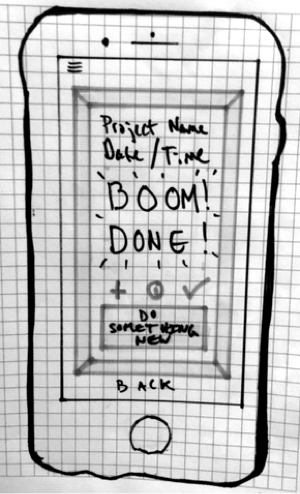 Project Name
Date / Time
BOOM!
DONE!
DO
SOMETHING
NEW
BACK